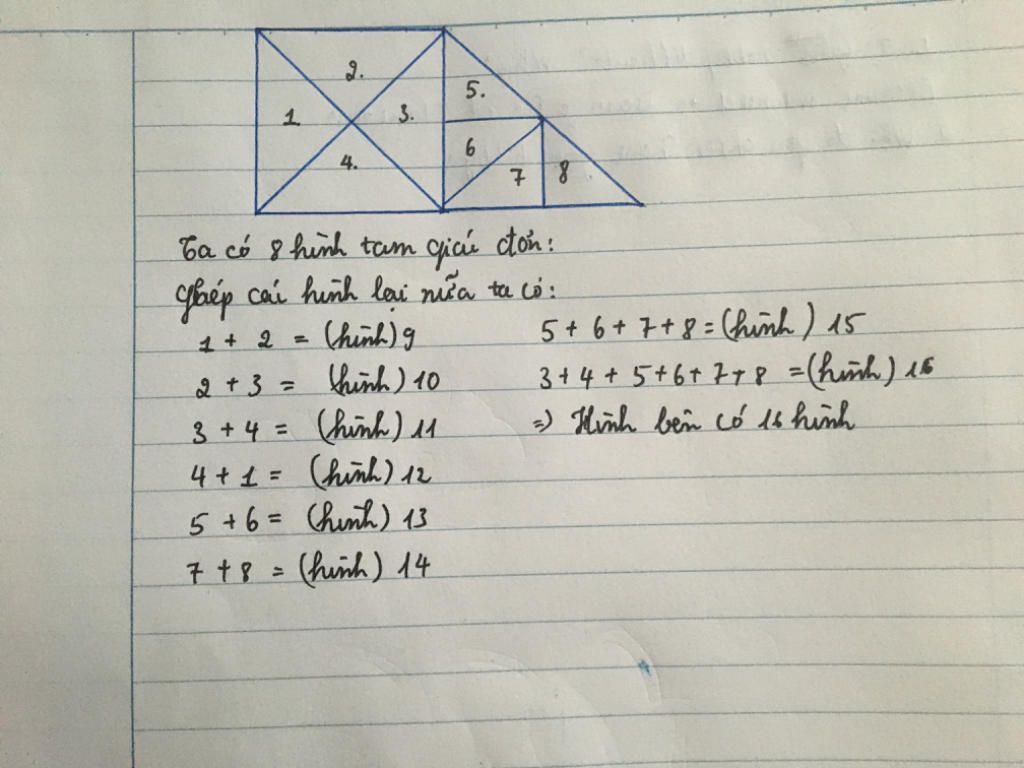 2.
5.
1
3.
6
4.
7
8
Ta có 8 hình tam giác đơn:
Ghép cái hình lại nữa ta có:
1 + 2 = (hình) 9
2 + 3 = (hình) 10
3 + 4 = (hình) 11
4 + 1 = (hình) 12
5 + 6 = (hình) 13
7 + 8 = (hình) 14
5 + 6 + 7 + 8 = (hình) 15
3 + 4 + 5 + 6 + 7 + 8 = (hình) 16
=> Hình bên có 16 hình